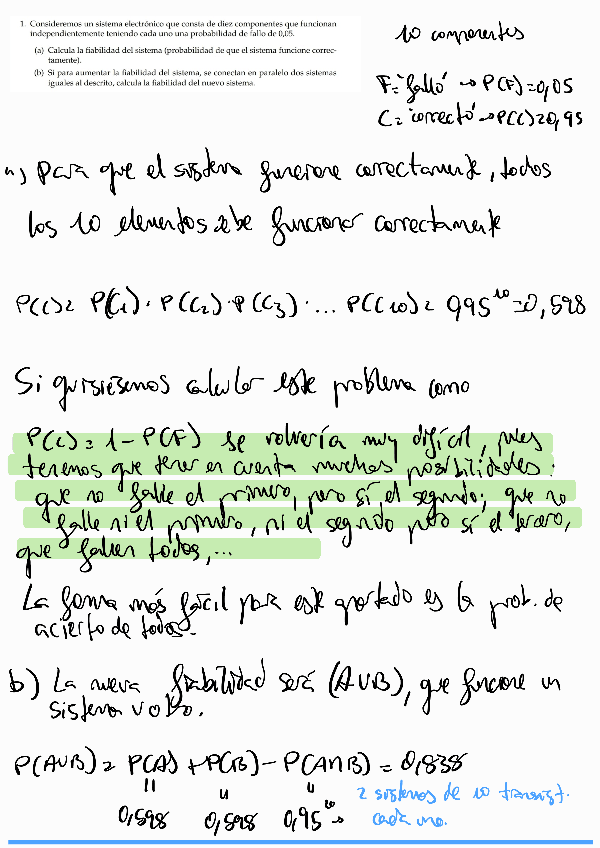 1. Consideremos un sistema electrónico que consta de diez componentes que funcionan
independientemente teniendo cada uno una probabilidad de fallo de 0,05.
(a) Calcula la fiabilidad del sistema (probabilidad de que el sistema funcione correc-
tamente).
(b) Si para aumentar la fiabilidad del sistema, se conectan en paralelo dos sistemas
iguales al descrito, calcula la fiabilidad del nuevo sistema.
10 componentes
F="falló" → P(F)=0,05
C="correcto" → P(C)=0,95
a) Para que el sistema funcione correctamente, todos
los 10 elementos debe funcionar correctamente
P(C)= P(C₁) · P(C₂) · P(C₃) · ... P(C10) = 0,95¹⁰=0,598
Si quisiésemos calcular este problema como
P(C)=1-P(F) se volvería muy difícil, pues
tenemos que tener en cuenta muchas posibilidades:
que no falle el primero, pero sí el segundo; que no
falle ni el primero, ni el segundo pero sí el tercero,
que fallen todos,...
La forma más fácil para este apartado es la prob. de
acierto de todos.
b) La nueva fiabilidad será (AUB), que funcione un
sistema u otro.
P(AUB) = P(A) + P(B) - P(A∩B) = 0,838
0,598 0,598 0,95²⁰ →
2 sistemas de 10 transist.
cada uno.